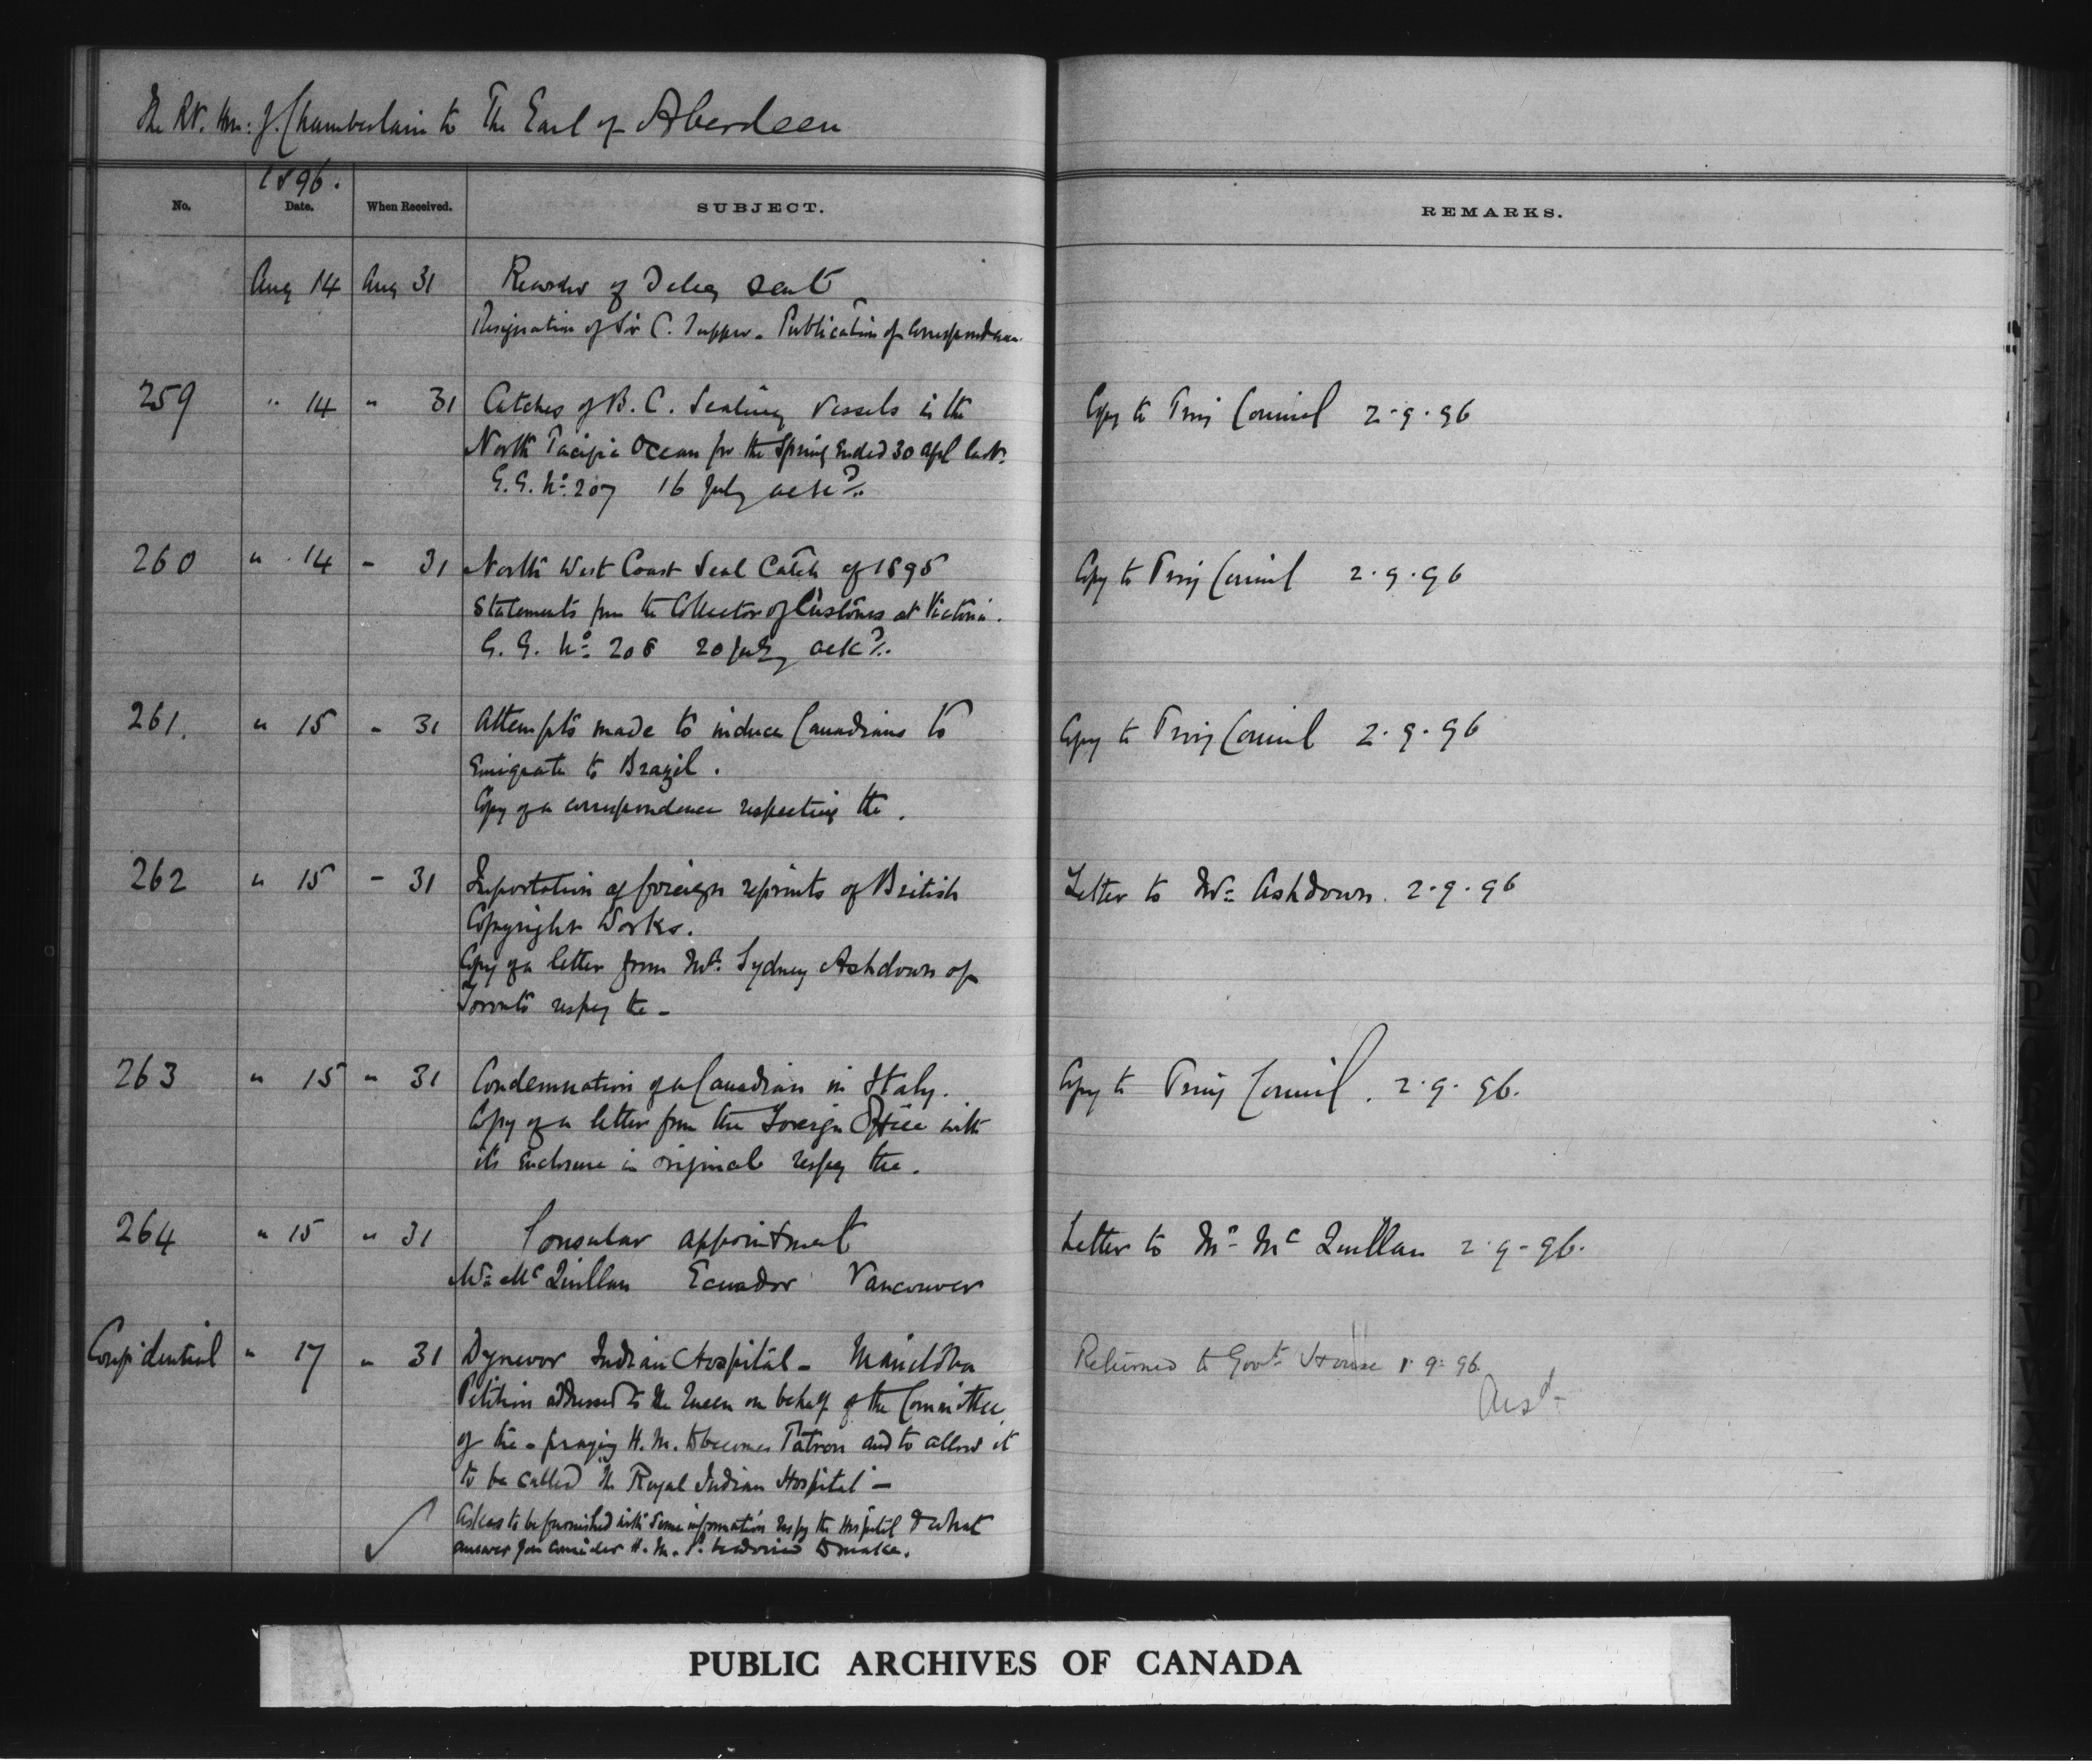 The Rt. Hon: J. Chamberlain to The Earl of Aberdeen
1896.
No. Date. When Received. SUBJECT. REMARKS.
Aug 14 Aug 31 Recorder of Teleg sent
Resignation of Sir C. Tupper - Publication of Correspondence.
259 " 14 " 31 Catches of B. C. Sealing Vessels in the Copy to Privy Council 2.9.96
North Pacific Ocean for the Spring ended 30 Apl last.
G.G. No. 207 16 July ackd.
260 " 14 - 31 North West Coast Seal Catch of 1895 Copy to Privy Council 2.9.96
Statements from the Collector of Customs at Victoria.
G.G. No. 208 20 July ackd.
261. " 15 - 31 Attempts made to induce Canadians to Copy to Privy Council 2.9.96
Emigrate to Brazil.
Copy of a correspondence respecting the.
262 " 15 - 31 Importation of foreign reprints of British Letter to Mr. Ashdown. 2.9.96
Copyright Works.
Copy of a letter from Mr. Sydney Ashdown of
Toronto respeg the -
263 " 15 " 31 Condemnation of a Canadian in Italy. Copy to Privy Council. 2.9.96.
Copy of a letter from the Foreign Office with
its enclosure in original respeg the.
264 " 15 " 31 Consular appointment Letter to Mr. Mc Quillan 2.9.96.
Mr. Mc Quillan Ecuador Vancouver
Confidential " 17 " 31 Dynevor Indian Hospital - Manitoba Returned to Govt. House 1.9.96
Petition addressed to the Queen on behalf of the Committee Ansd.
of the - praying H.M. to become Patron and to allow it
to be called "The Royal Indian Hospital" -
Asks to be furnished with some information respg the Hospital & what
answer you consider H.M. sd. be advised to make.
PUBLIC ARCHIVES OF CANADA